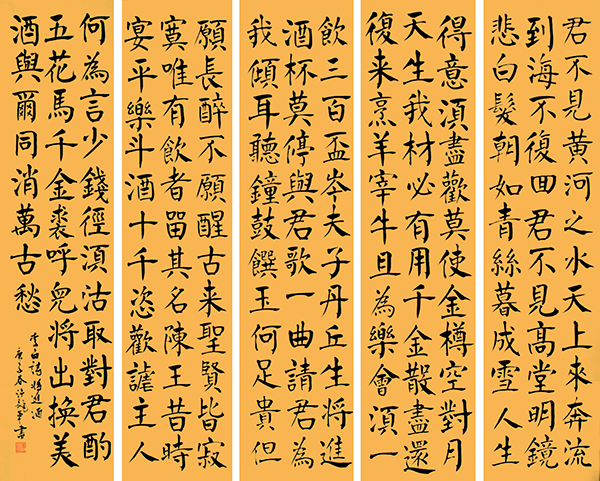 君不見黃河之水天上來奔流
到海不復回君不見髙堂明鏡
悲白髮朝如青絲暮成雪人生
得意須盡歡莫使金樽空對月
天生我材必有用千金散盡還
復来烹羊宰牛且為樂會須一
飲三百盃岑夫子丹丘生將進
酒杯莫停與君歌一曲請君為
我傾耳聽鐘鼓饌玉何足貴但
願長醉不願醒古来聖賢皆寂
寞唯有飲者留其名陳王昔時
宴平樂斗酒十千恣歡謔主人
何為言少錢徑須沽取對君酌
五花馬千金裘呼兒將出換美
酒與爾同消萬古愁
李白詩將進酒
庚子春許書